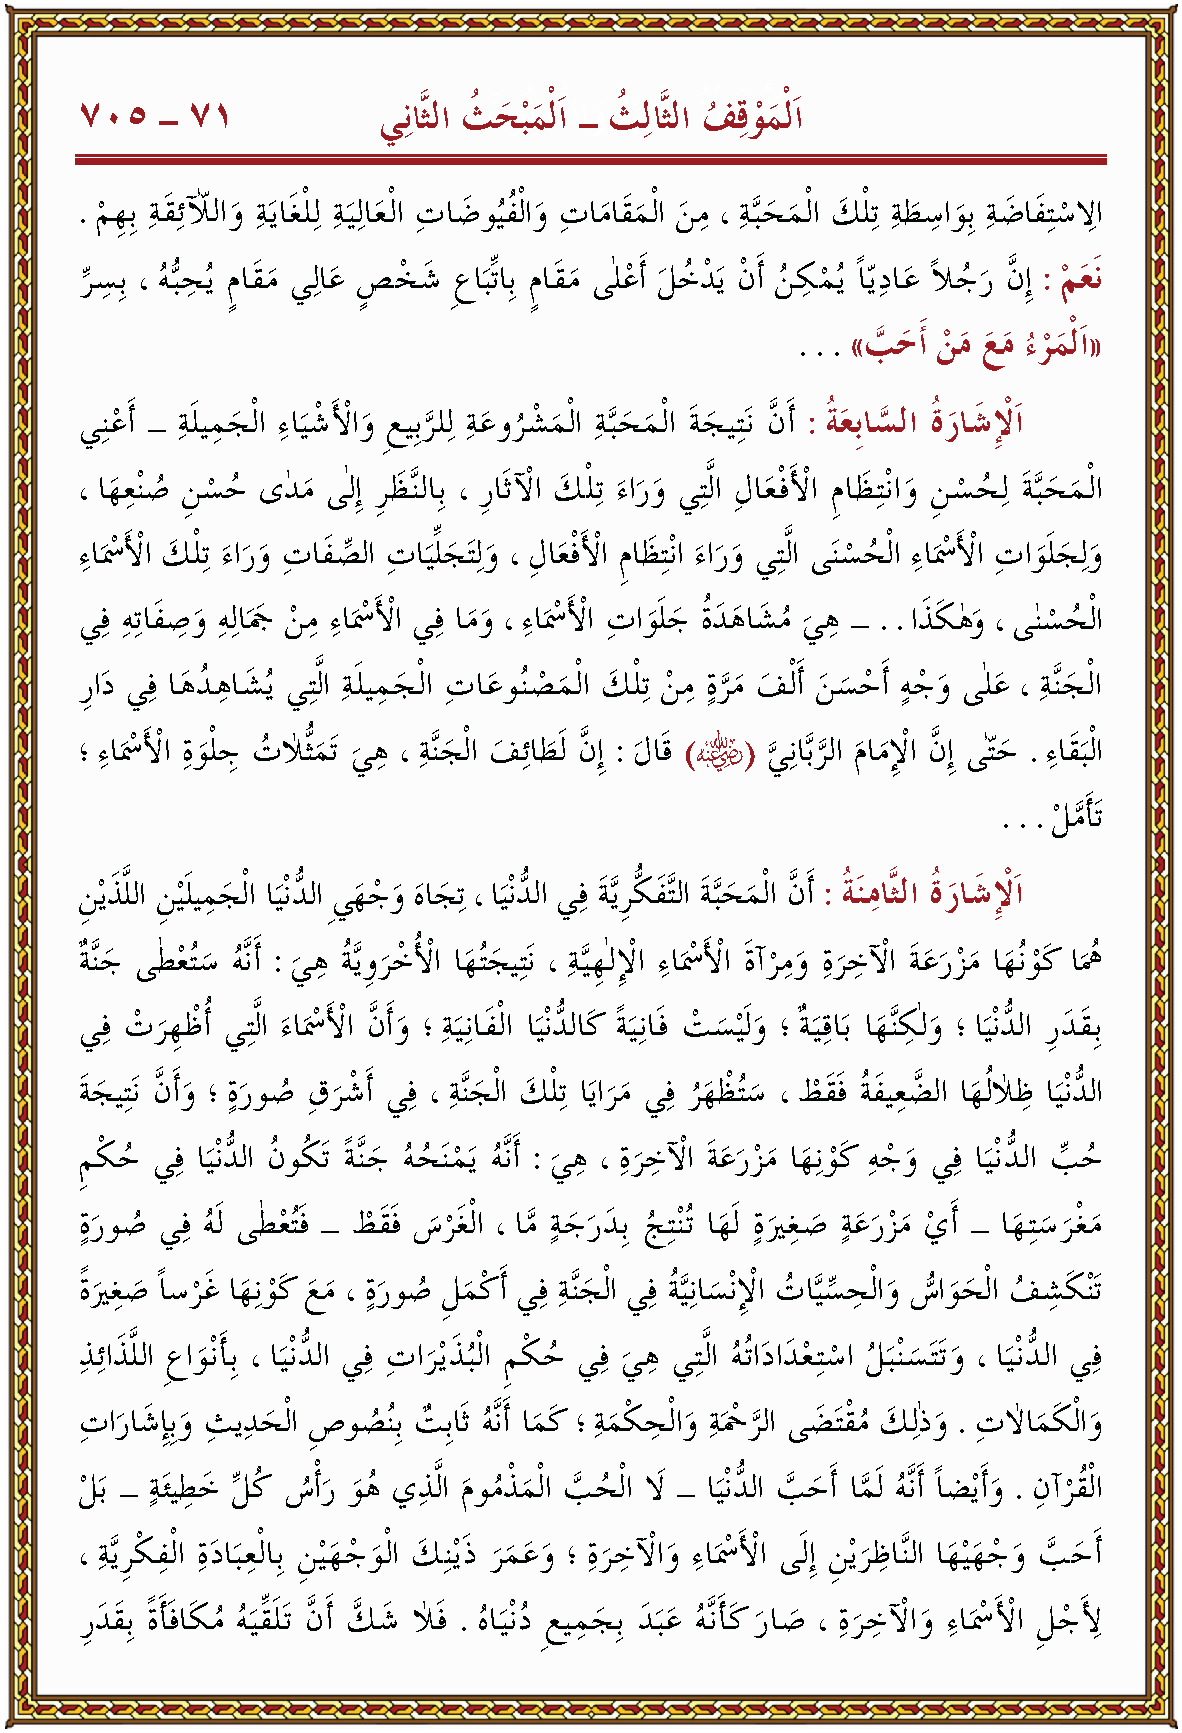 اَلْمَوْقِفُ الثَّالِثُ ـ اَلْمَبْحَثُ الثَّانِي ٧١ ـ ٧٠٥
الِاسْتِفَاضَةِ بِوَاسِطَةِ تِلْكَ الْمَحَبَّةِ ، مِنَ الْمَقَامَاتِ وَالْفُيُوضَاتِ الْعَالِيَةِ لِلْغَايَةِ وَاللَّآئِقَةِ بِهِمْ .
نَعَمْ : إِنَّ رَجُلاً عَادِيّاً يُمْكِنُ أَنْ يَدْخُلَ أَعْلٰى مَقَامٍ بِاتِّبَاعِ شَخْصٍ عَالِي مَقَامٍ يُحِبُّهُ ، بِسِرِّ
«اَلْمَرْءُ مَعَ مَنْ أَحَبَّ» . . .
اَلْإِشَارَةُ السَّابِعَةُ : أَنَّ نَتِيجَةَ الْمَحَبَّةِ الْمَشْرُوعَةِ لِلرَّبِيعِ وَالْأَشْيَاءِ الْجَمِيلَةِ ـ أَعْنِي
الْمَحَبَّةَ لِحُسْنِ وَانْتِظَامِ الْأَفْعَالِ الَّتِي وَرَاءَ تِلْكَ الْآثَارِ ، بِالنَّظَرِ إِلٰى مَدٰى حُسْنِ صُنْعِهَا ،
وَلِجَلَوَاتِ الْأَسْمَاءِ الْحُسْنَى الَّتِي وَرَاءَ انْتِظَامِ الْأَفْعَالِ ، وَلِتَجَلِّيَاتِ الصِّفَاتِ وَرَاءَ تِلْكَ الْأَسْمَاءِ
الْحُسْنٰى ، وَهٰكَذَا . . ـ هِيَ مُشَاهَدَةُ جَلَوَاتِ الْأَسْمَاءِ ، وَمَا فِي الْأَسْمَاءِ مِنْ جَمَالِهِ وَصِفَاتِهِ فِي
الْجَنَّةِ ، عَلٰى وَجْهٍ أَحْسَنَ أَلْفَ مَرَّةٍ مِنْ تِلْكَ الْمَصْنُوعَاتِ الْجَمِيلَةِ الَّتِي يُشَاهِدُهَا فِي دَارِ
الْبَقَاءِ . حَتّٰى إِنَّ الْإِمَامَ الرَّبَّانِيَّ (رَضِيَ اللهُ عَنْهُ) قَالَ : إِنَّ لَطَائِفَ الْجَنَّةِ ، هِيَ تَمَثُّلَاتُ جِلْوَةِ الْأَسْمَاءِ ؛
تَأَمَّلْ . . .
اَلْإِشَارَةُ الثَّامِنَةُ : أَنَّ الْمَحَبَّةَ التَّفَكُّرِيَّةَ فِي الدُّنْيَا ، تِجَاهَ وَجْهَيِ الدُّنْيَا الْجَمِيلَيْنِ اللَّذَيْنِ
هُمَا كَوْنُهَا مَزْرَعَةَ الْآخِرَةِ وَمِرْآةَ الْأَسْمَاءِ الْإِلٰهِيَّةِ ، نَتِيجَتُهَا الْأُخْرَوِيَّةُ هِيَ : أَنَّهُ سَتُعْطَى جَنَّةٌ
بِقَدَرِ الدُّنْيَا ؛ وَلٰكِنَّهَا بَاقِيَةٌ ؛ وَلَيْسَتْ فَانِيَةً كَالدُّنْيَا الْفَانِيَةِ ؛ وَأَنَّ الْأَسْمَاءَ الَّتِي أُظْهِرَتْ فِي
الدُّنْيَا ظِلَالُهَا الضَّعِيفَةُ فَقَطْ ، سَتُظْهَرُ فِي مَرَايَا تِلْكَ الْجَنَّةِ ، فِي أَشْرَقِ صُورَةٍ ؛ وَأَنَّ نَتِيجَةَ
حُبِّ الدُّنْيَا فِي وَجْهِ كَوْنِهَا مَزْرَعَةَ الْآخِرَةِ ، هِيَ : أَنَّهُ يَمْنَحُهُ جَنَّةً تَكُونُ الدُّنْيَا فِي حُكْمِ
مَغْرَسَتِهَا ـ أَيْ مَزْرَعَةٍ صَغِيرَةٍ لَهَا تُنْتِجُ بِدَرَجَةٍ مَّا ، الْغَرْسَ فَقَطْ ـ فَتُعْطٰى لَهُ فِي صُورَةٍ
تَنْكَشِفُ الْحَوَاسُّ وَالْحِسِّيَّاتُ الْإِنْسَانِيَّةُ فِي الْجَنَّةِ فِي أَكْمَلِ صُورَةٍ ، مَعَ كَوْنِهَا غَرْساً صَغِيرَةً
فِي الدُّنْيَا ، وَتَتَسَنْبَلُ اسْتِعْدَادَاتُهُ الَّتِي هِيَ فِي حُكْمِ الْبُذَيْرَاتِ فِي الدُّنْيَا ، بِأَنْوَاعِ اللَّذَائِذِ
وَالْكَمَالَاتِ . وَذٰلِكَ مُقْتَضَى الرَّحْمَةِ وَالْحِكْمَةِ ؛ كَمَا أَنَّهُ ثَابِتٌ بِنُصُوصِ الْحَدِيثِ وَبِإِشَارَاتِ
الْقُرْآنِ . وَأَيْضاً أَنَّهُ لَمَّا أَحَبَّ الدُّنْيَا ـ لَا الْحُبَّ الْمَذْمُومَ الَّذِي هُوَ رَأْسُ كُلِّ خَطِيئَةٍ ـ بَلْ
أَحَبَّ وَجْهَيْهَا النَّاظِرَيْنِ إِلَى الْأَسْمَاءِ وَالْآخِرَةِ ؛ وَعَمَرَ ذَيْنِكَ الْوَجْهَيْنِ بِالْعِبَادَةِ الْفِكْرِيَّةِ ،
لِأَجْلِ الْأَسْمَاءِ وَالْآخِرَةِ ، صَارَ كَأَنَّهُ عَبَدَ بِجَمِيعِ دُنْيَاهُ . فَلَا شَكَّ أَنَّ تَلَقِّيَهُ مُكَافَأَةً بِقَدَرِ